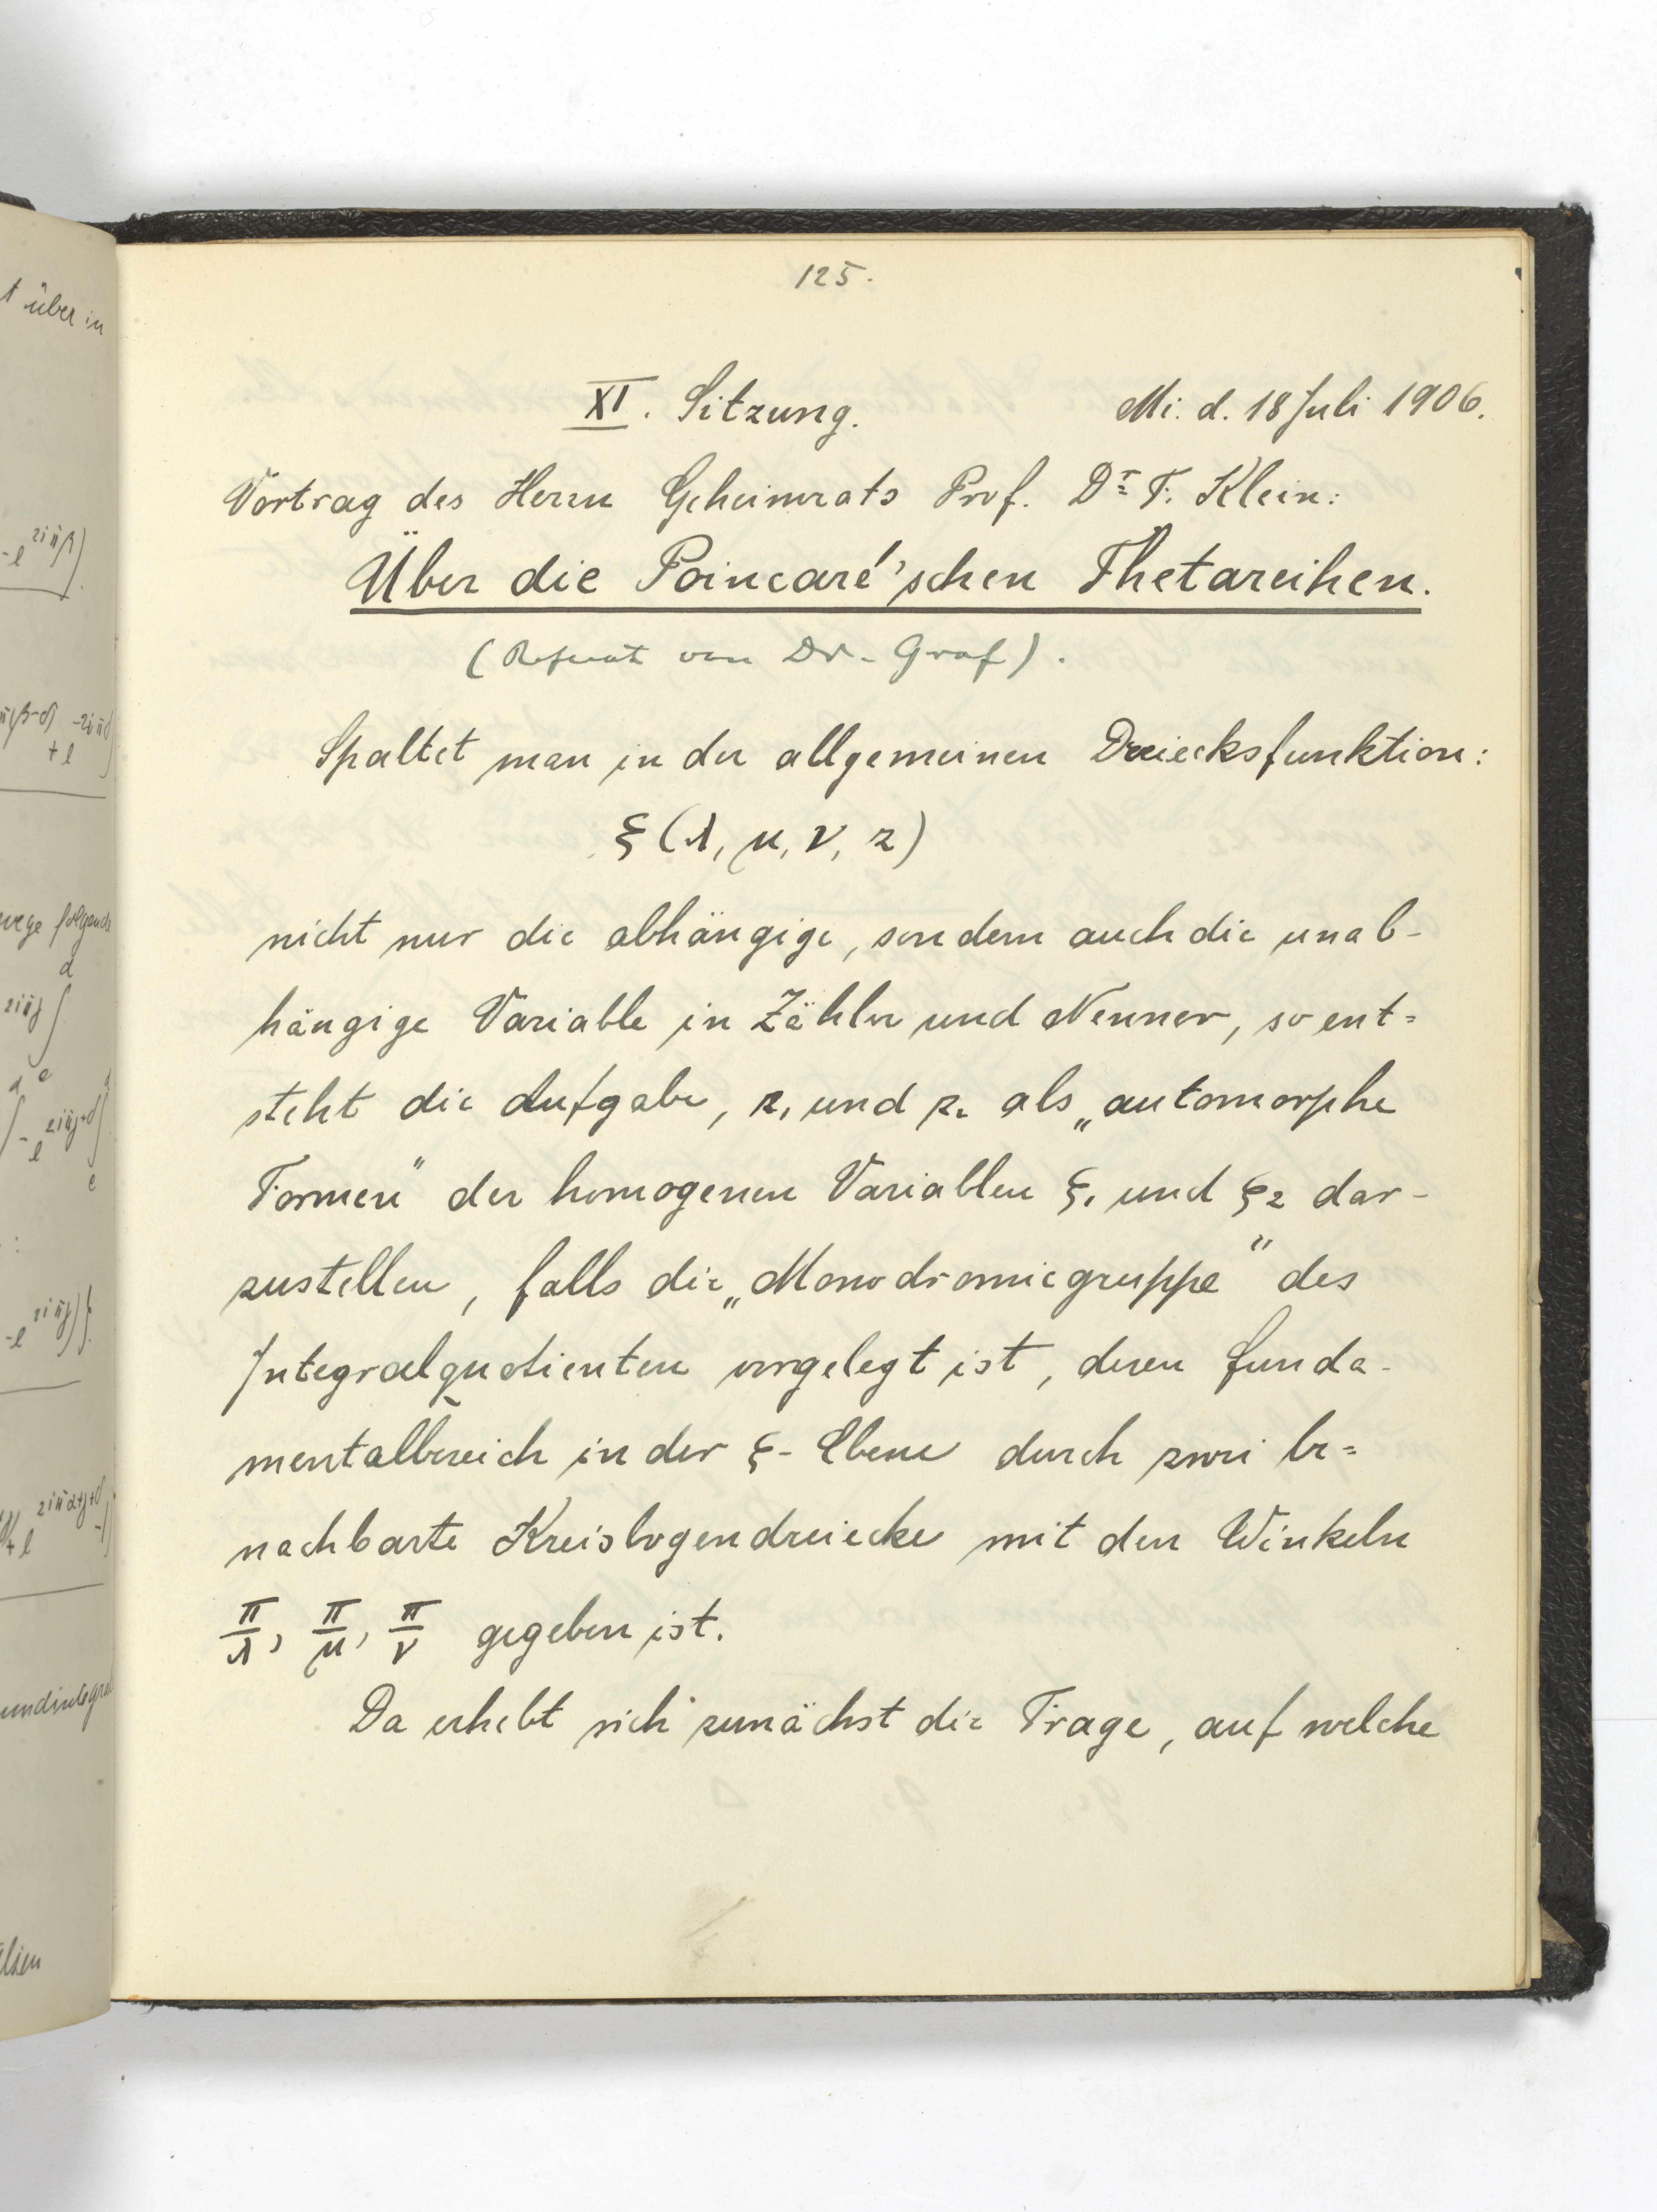 125.
XI. Sitzung. Mi. d. 18 Juli 1906.
Vortrag des Herrn Geheimrats Prof. Dr. F. Klein:
Über die Poincaré'schen Thetareihen.
(Referat von Dr. Graf).
Spaltet man in der allgemeinen Dreiecksfunktion:
ξ (λ, μ, ν, z)
nicht nur die abhängige, sondern auch die unab-
hängige Variable in Zähler und Nenner, so ent=
steht die Aufgabe, z₁ und z₂ als „automorphe
Formen" der homogenen Variablen ξ₁ und ξ₂ dar-
zustellen, falls die „Monodromiegruppe" des
Integralquotienten vorgelegt ist, deren Funda-
mentalbereich in der ξ-Ebene durch zwei be=
nachbarte Kreisbogendreiecke mit den Winkeln
π/λ, π/μ, π/ν gegeben ist.
Da erhebt sich zunächst die Frage, auf welche